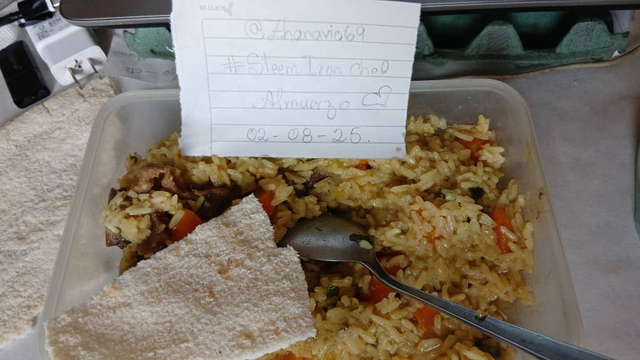 @Zhanavic69
#Steem Iron chef
Almuerzo
02-08-25.